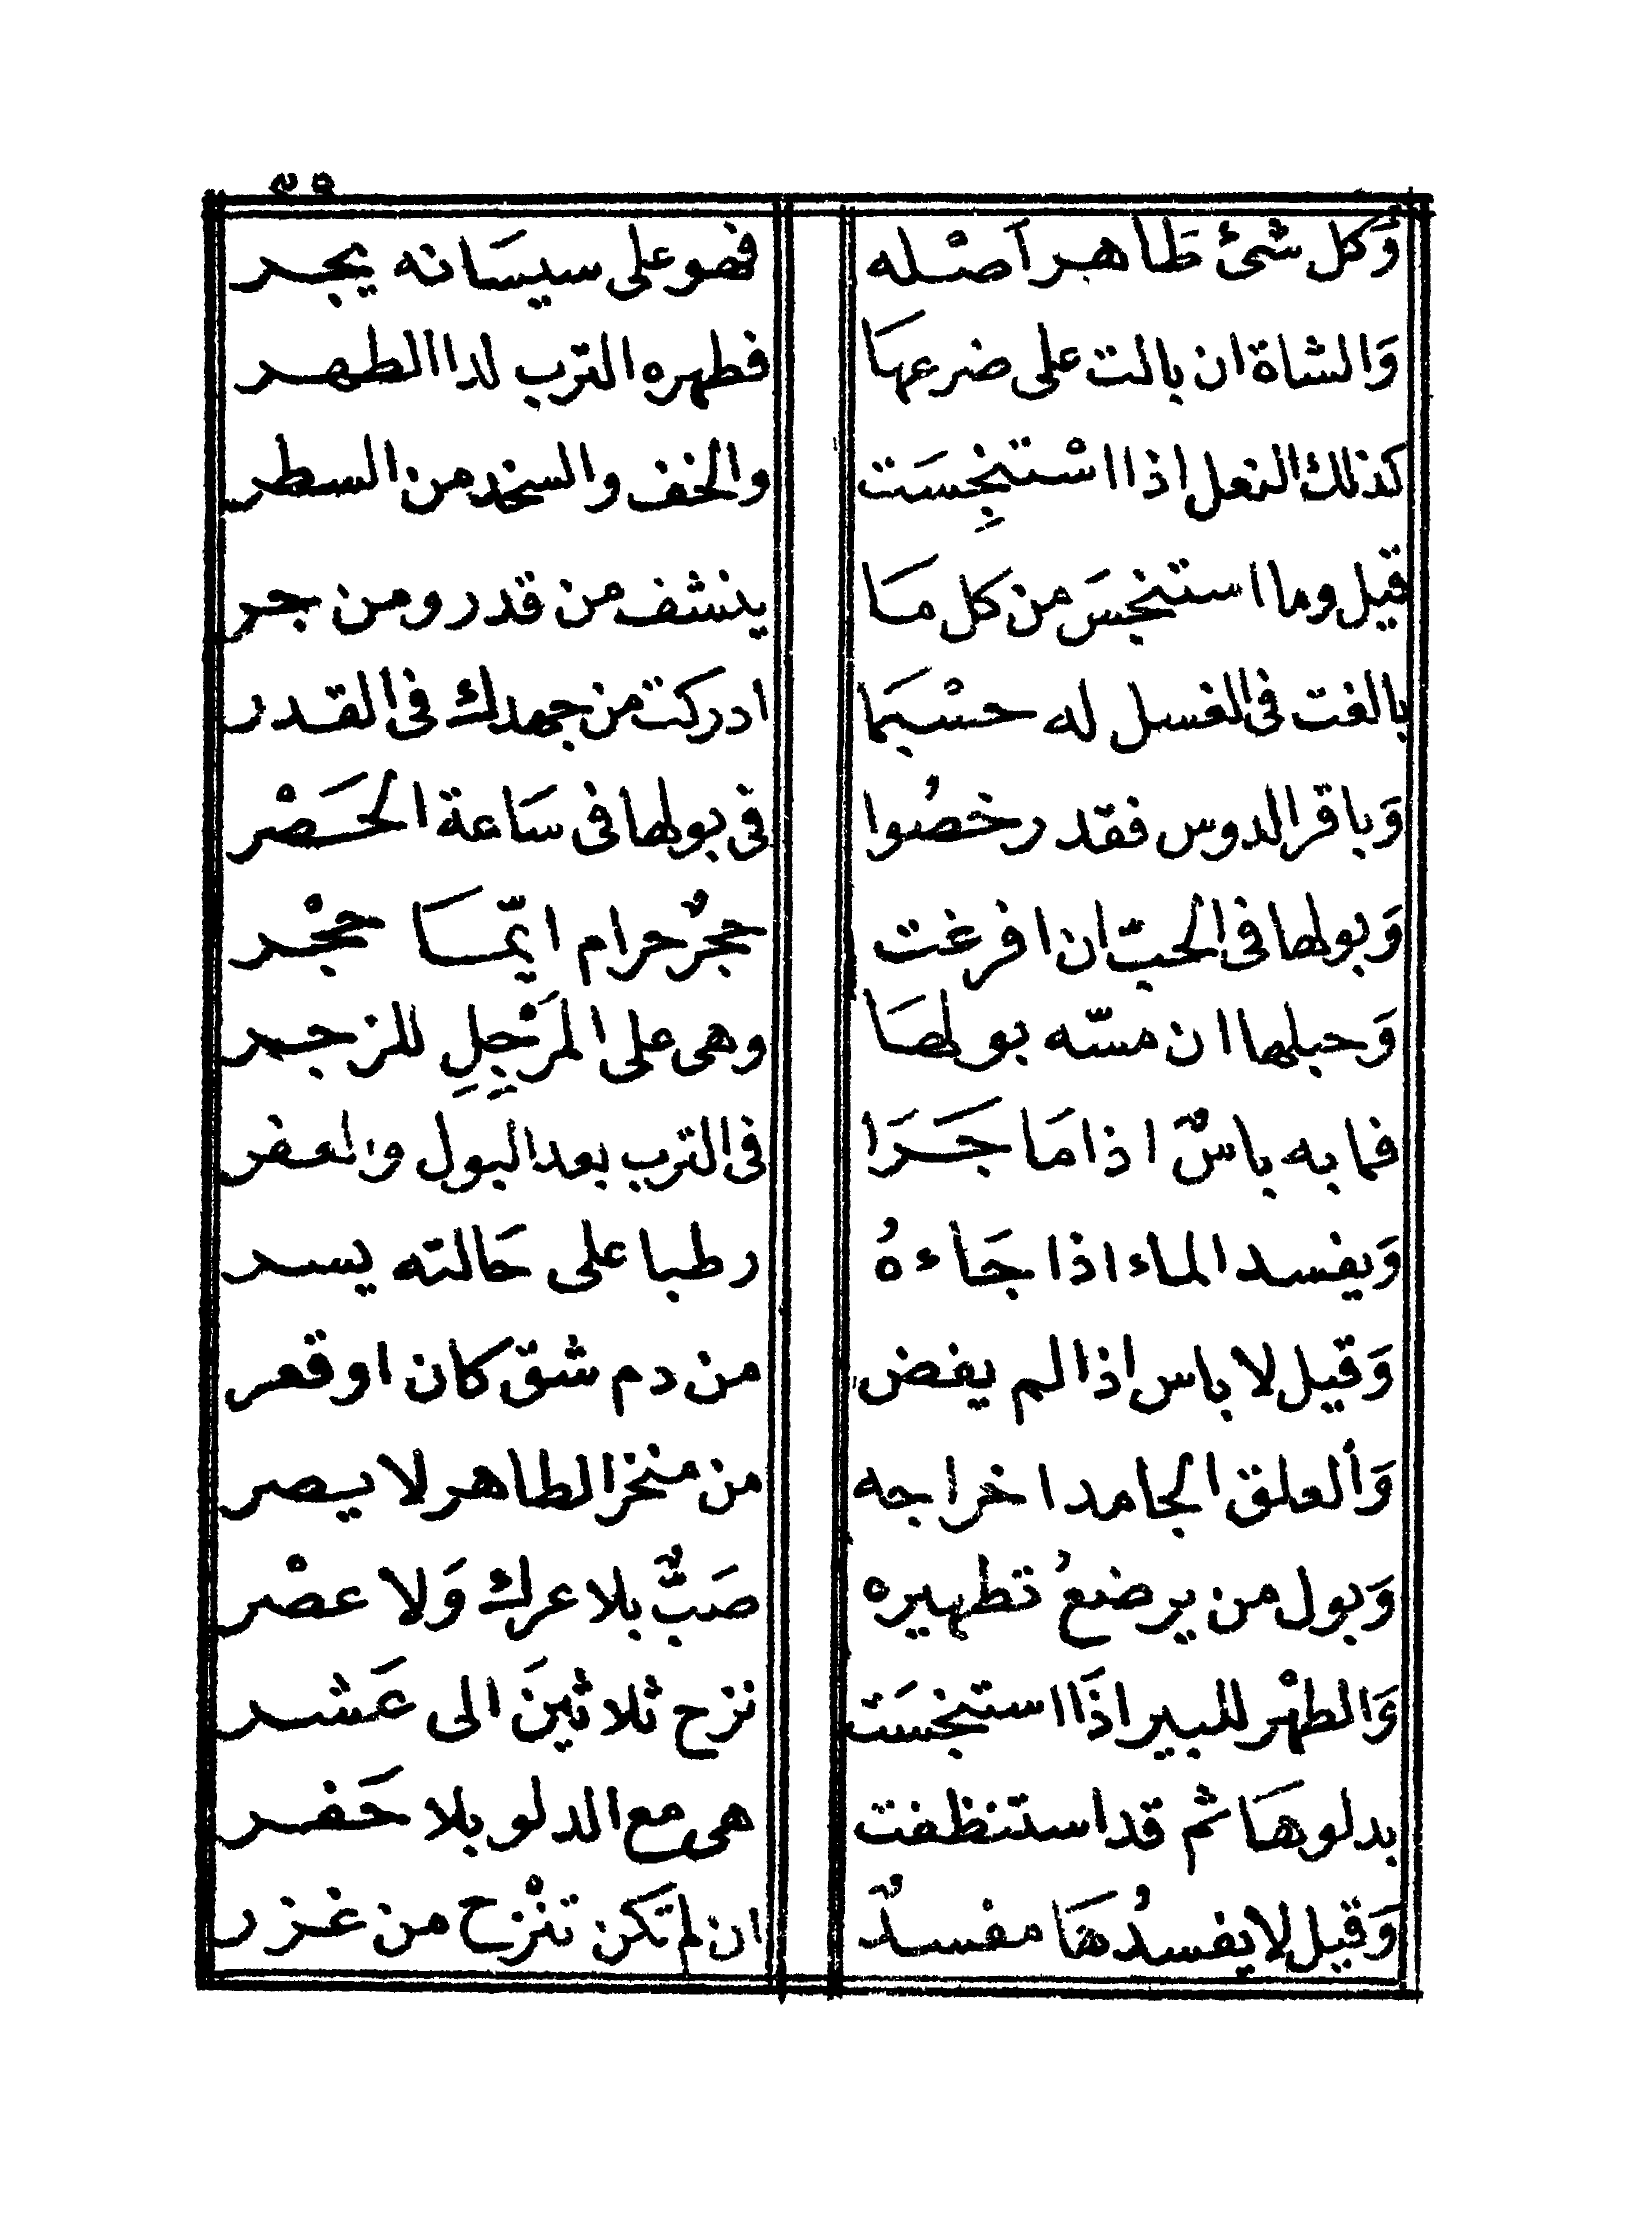 وَكل شئ طَاهر اَصْله فهو على سيسَانه يجر
وَالشاة ان بالت على ضرعهَا فطهره الترب لدا الطهر
كذلك النعل اذا اسْتنجِسَت والخف والسنحد من السطر
قيل وما استنجسَ من كل مَا ينشف من قدر ومن جر
بالغت فى الغسل له حسْبمَا ادركت من جهدك فى القدر
وَباقر الدوس فقد رخصُوا فى بولها فى سَاعة الحَصْر
وَبولها فى الحبّ ان افرغت حجرٌ حرام ايّمَا حجْر
وَحبلها ان مسّه بولهَا وهى على المَرْجِلِ للزجر
فما به باسٌ اذا مَا جَرَا فى الترب بعد البول والعفر
وَيفسد الماء اذا جَاءهُ رطبا على حَالته يسر
وَقيل لا باس اذا لم يفض من دم شق كان او قعر
وَالعلق الجامد اخراجه من منخر الطاهر لا يصر
وَبول من يرضعُ تطهيره صَبٌّ بلا عرك وَلا عصْر
وَالطهْر للبير اذَا استنجسَت نزح ثلاثينَ الى عَشر
بدلوهَا ثم قد استنظفت هى مع الدلو بلا حَفر
وَقيل لا يفسدُهَا مفسدٌ ان لم تكن تنْزح من غزر